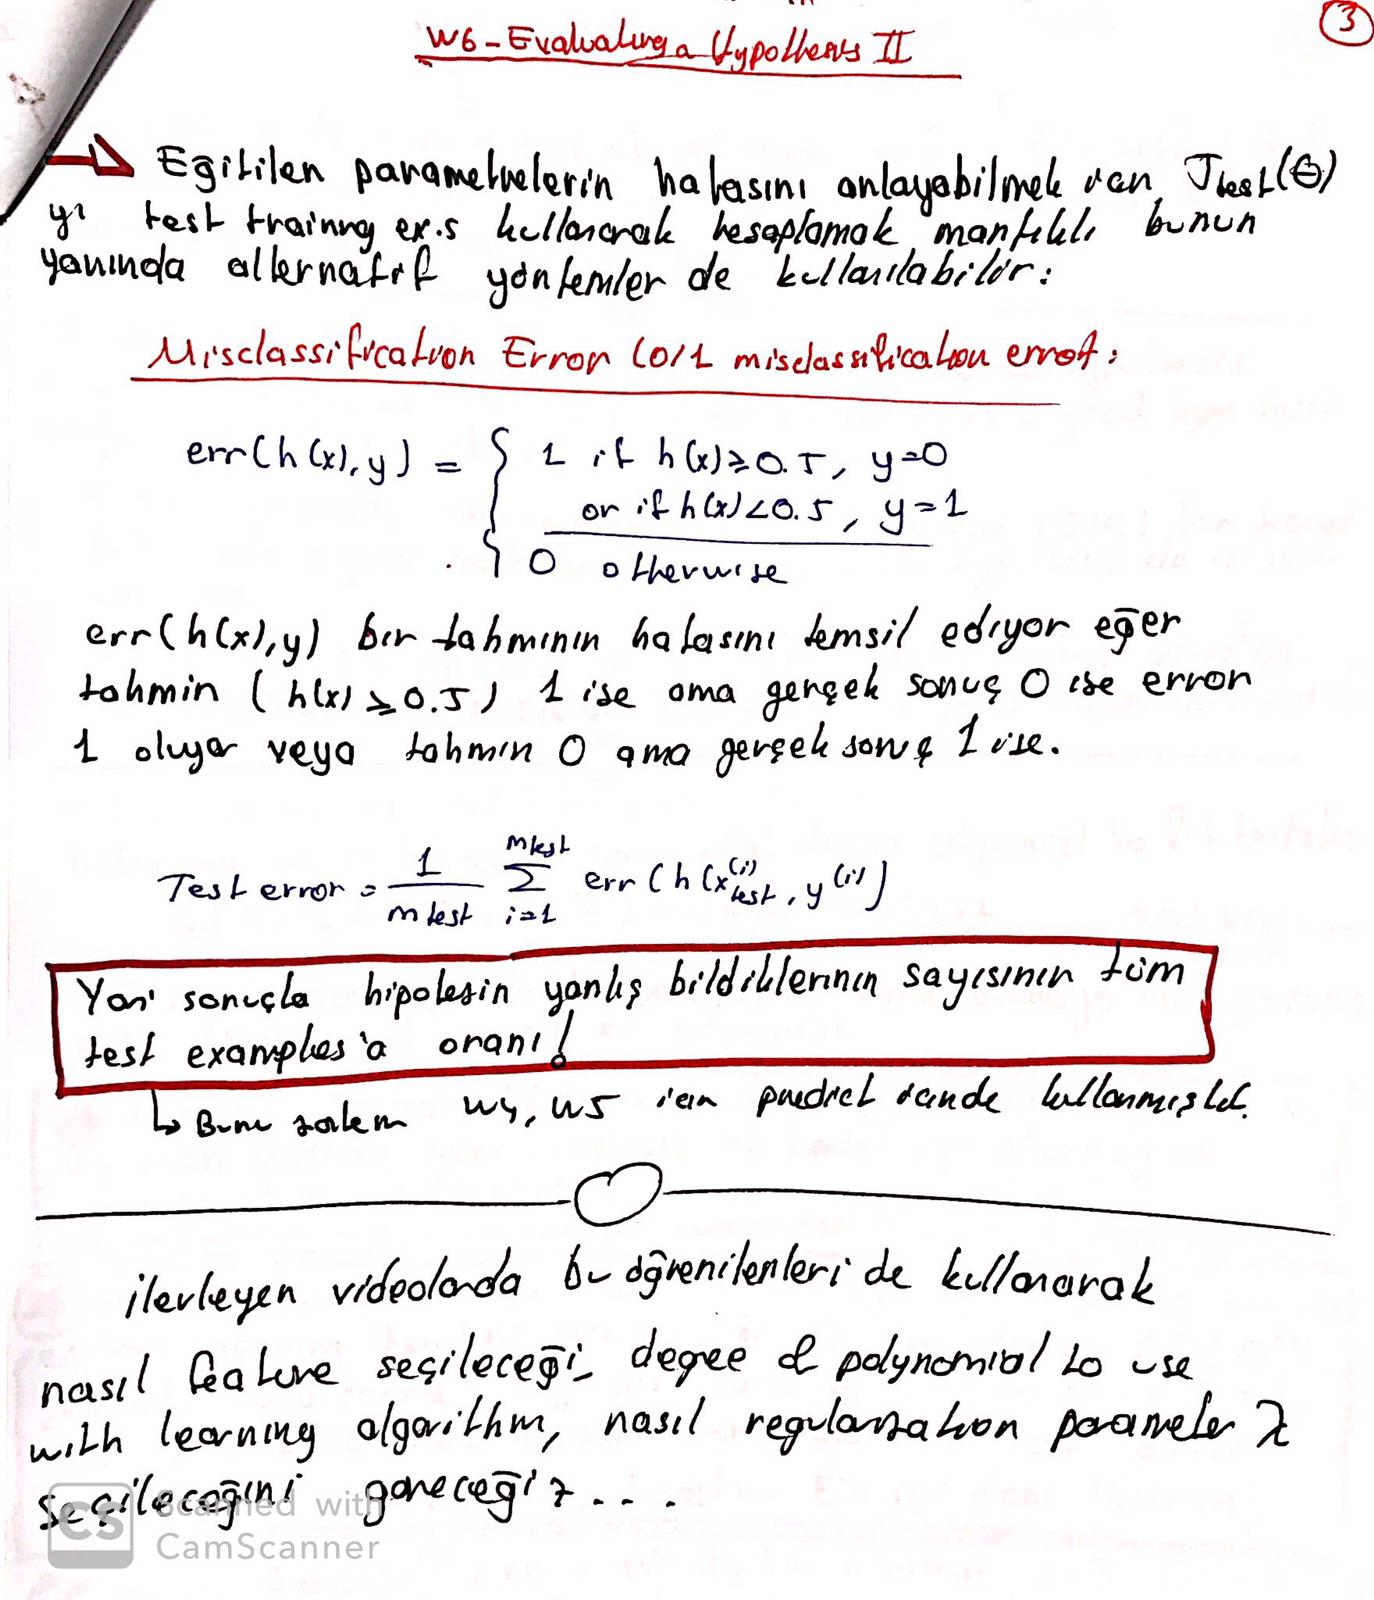 3
W6-Evaluating a Hypothesis II
→ Eğitilen parametrelerin hatasını anlayabilmek için J_test(Θ)
yı test training ex.s kullanarak hesaplamak mantıklı bunun
yanında alternatif yöntemler de kullanılabilir:
Misclassification Error (0/1 misclassification error:
err(h(x),y) = { 1 if h(x)≥0.5, y=0
or if h(x)<0.5, y=1
0 otherwise
err(h(x),y) bir tahminin hatasını temsil ediyor eğer
tahmin (h(x)≥0.5) 1 ise ama gerçek sonuç 0 ise error
1 oluyor veya tahmin 0 ama gerçek sonuç 1 ise.
Test error = 1/m_test Σ_{i=1}^{m_test} err(h(x_test^{(i)}, y^{(i)})
Yani sonuçta hipotesin yanlış bildiklerinin sayısının tüm
test examples'a oranı!
↳ Bunu zaten W4, W5 için predict içinde kullanmıştık.
ilerleyen videolarda bu öğrenilenleri de kullanarak
nasıl feature seçileceği, degree of polynomial to use
with learning algorithm, nasıl regularization parameter λ
seçileceğini göreceğiz...
CS Scanned with
CamScanner